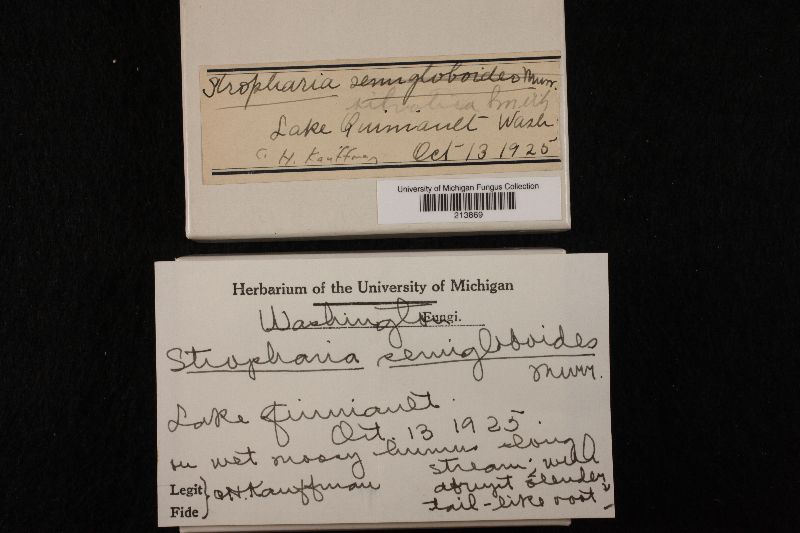 Stropharia semigloboides Murr.
silvatica Smith
Lake Quiniault Wash
C. H. Kauffman Oct 13 1925
University of Michigan Fungus Collection
213869
Herbarium of the University of Michigan
Washington Fungi.
Stropharia semigloboides
Murr.
Lake Quiniault.
Oct. 13 1925
on wet mossy humus along
stream; with
Legit C.H. Kauffman abrupt slender
Fide tail-like root